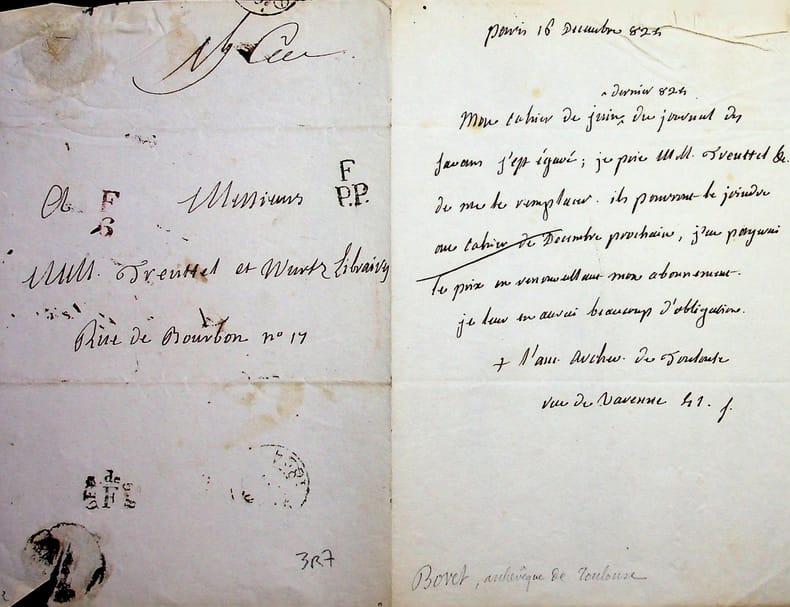 A Messieurs
F
B
F
P.P.
MM. Treuttel et Wurtz Libraires
Rue de Bourbon n° 17
3R7
paris 16 Decembre 824
dernier 824
Mon cahier de juin du journal des
savans s'est égaré ; je prie MM. Treuttel &c.
de me le remplacer. ils pourront le joindre
au cahier de Decembre prochain, j'en payerai
le prix en renouvellant mon abonnement.
je leur en aurai beaucoup d'obligation.
+ l'anc. archev. de Toulouse
rue de Varenne 41.
Bovet, archevêque de Toulouse